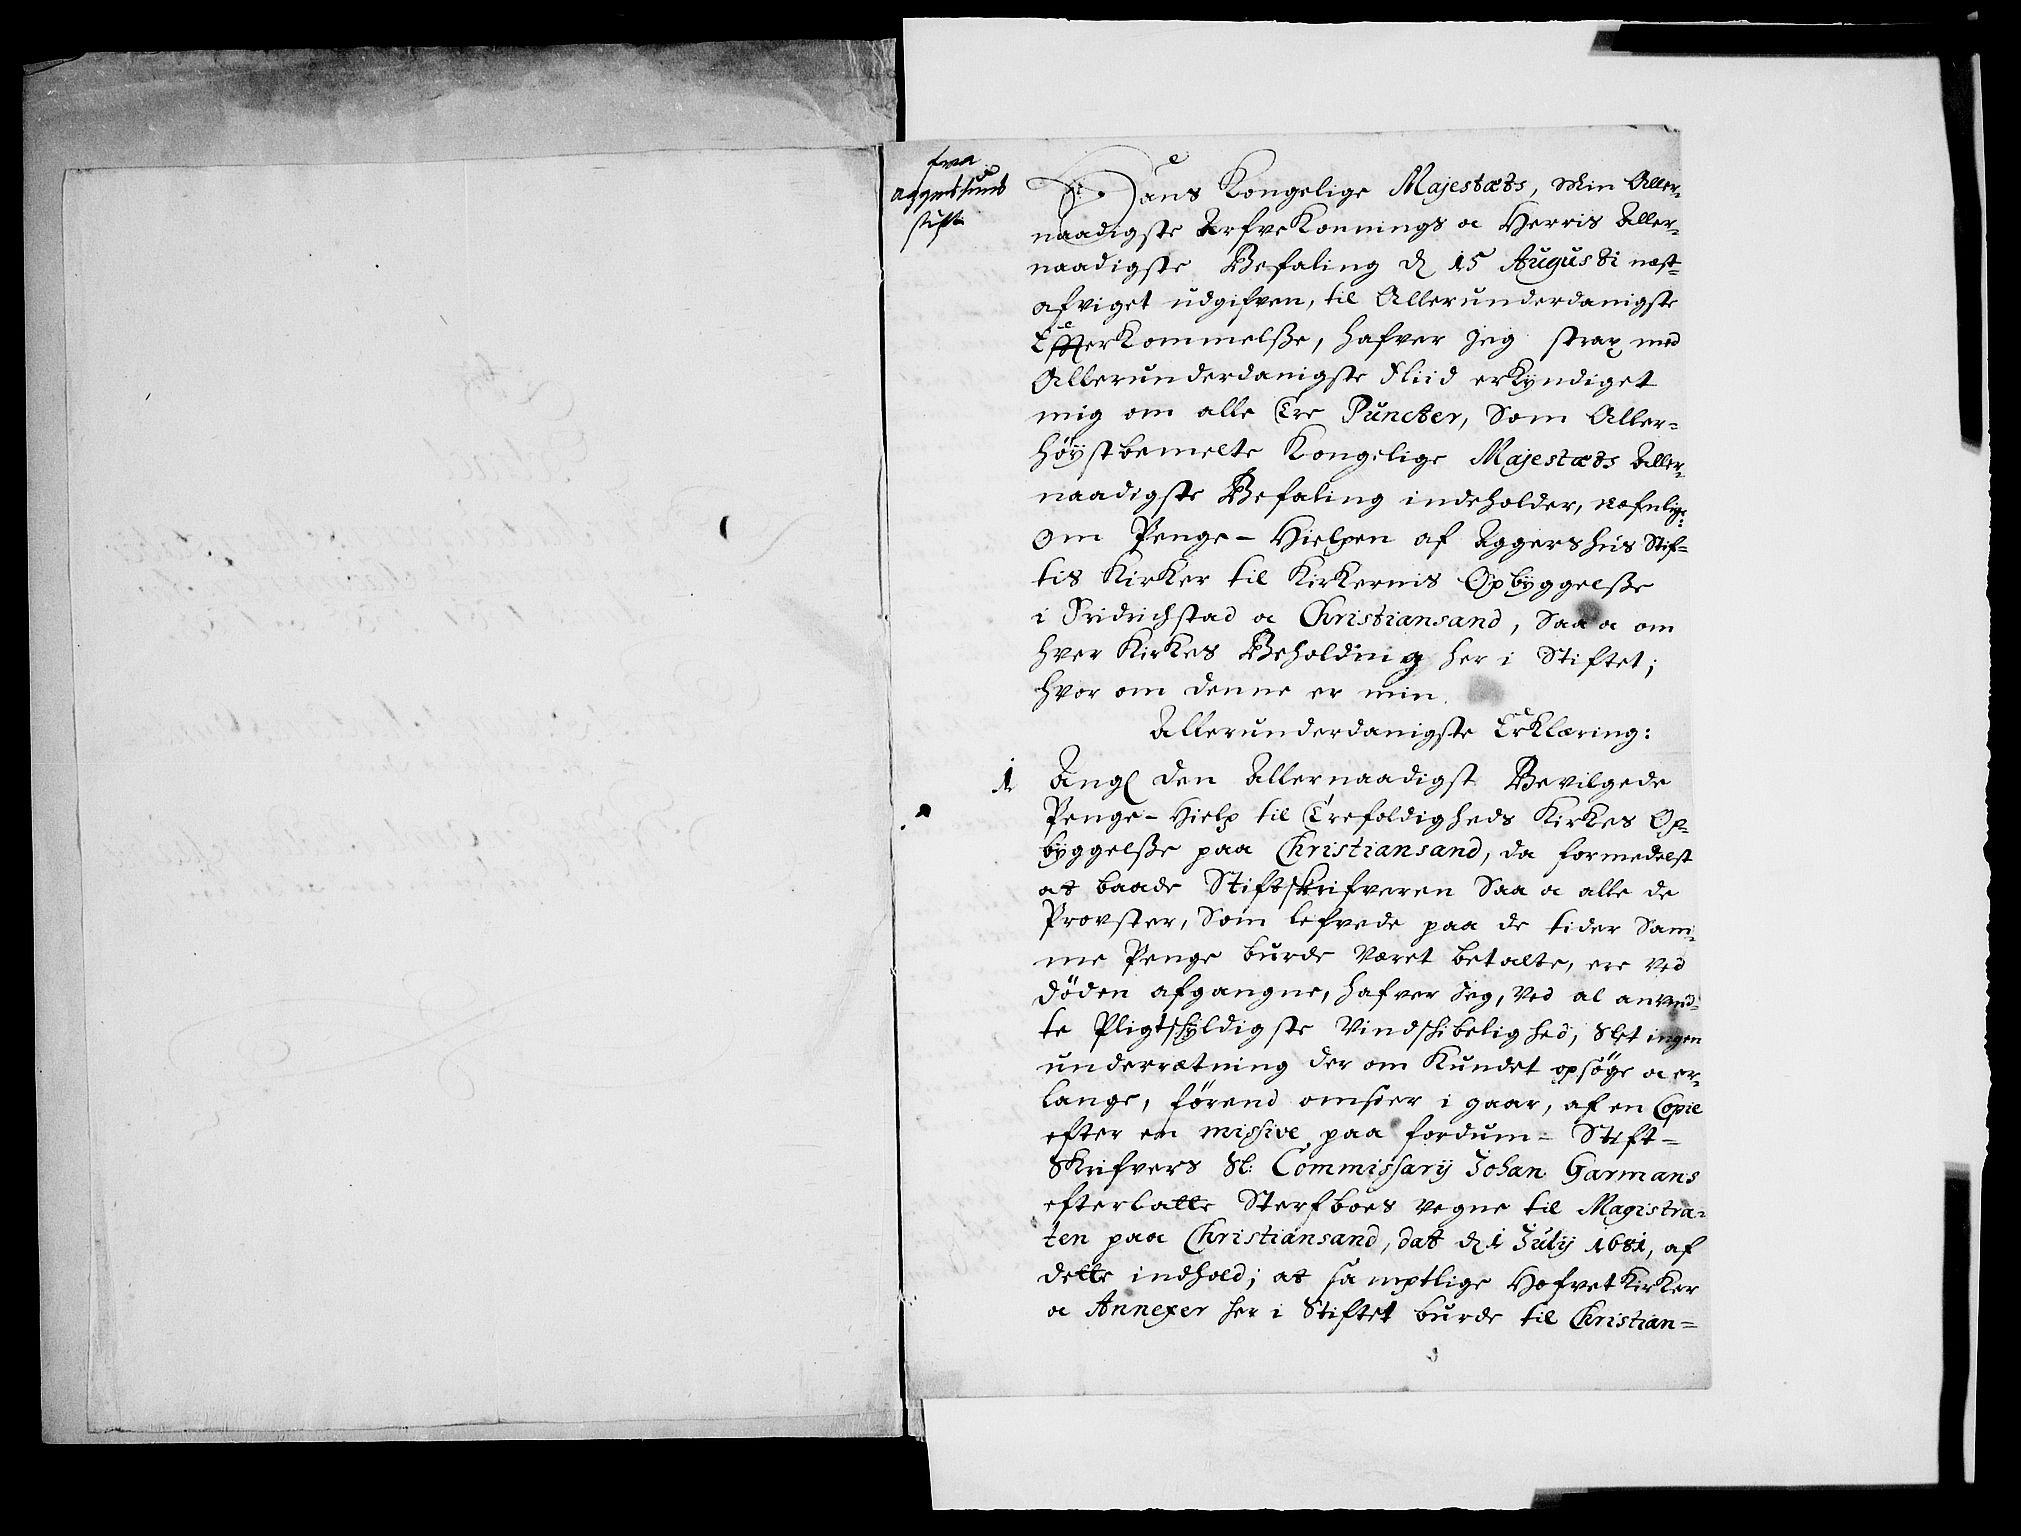 fra
Aggershuus
stift
Hans Kongelige Majestæts, Min Aller-
naadigste Arfve Konnings oc Herris Aller-
naadigste Befaling d 15 Augusti næst-
afviget udgifven, til Allerunderdanigste
Efterkommelsse, hafver Jeg strax med
Allerunderdanigste Fliid erkyndiget
mig om alle Tre Puncter, Som Aller-
høystbemelte Kongelige Majestæts Aller-
naadigste Befaling indeholder, næfnlig:
Om Penge-Hielpen af Aggershus Stif-
tis Kirker til Kirkernis Opbyggelsse
i Fridrichstad oc Christiansand, Saa oc om
hver Kirkes Beholdning her i Stiftet;
hvor om denne er min
Allerunderdanigste Erklæring:
1 Ang den Allernaadigst Bevilgede
Penge-Hielp til Trefoldigheds Kirkes Op-
byggelsse paa Christiansand, da formedelst
at baade Stiftskrifveren Saa oc alle de
Provster, Som lefvede paa de tider Sam-
me Penge burde Været betalte, ere ved
døden afgangne, hafver Jeg, Ved al anvend-
te Pligtskyldigste Vindskibelighed, Slet ingen
underrætning der om Kundet opsøge oc er-
lange, førend omsier i gaar, af en Copie
efter en missive paa fordum- Stift-
Skrifvers Sl: Commissarij Johan Garmans
efterlatte Sterfboes vegne til Magistra-
ten paa Christiansand, dat d 1 Julij 1681, af
dette indhold; at samptlige Hofvet Kirker
oc Annexer her i Stiftet burde til Christian-